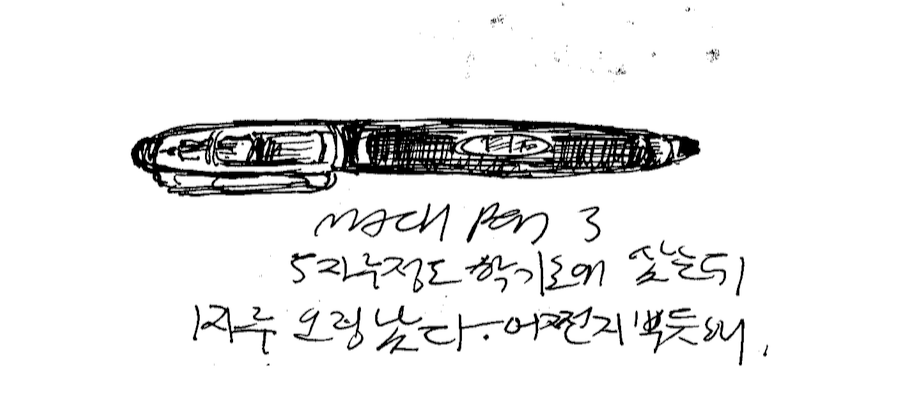 mach pen 3
5자루정도 학기초에 샀는데
1자루 남았다. 어쩐지 뿌듯해.